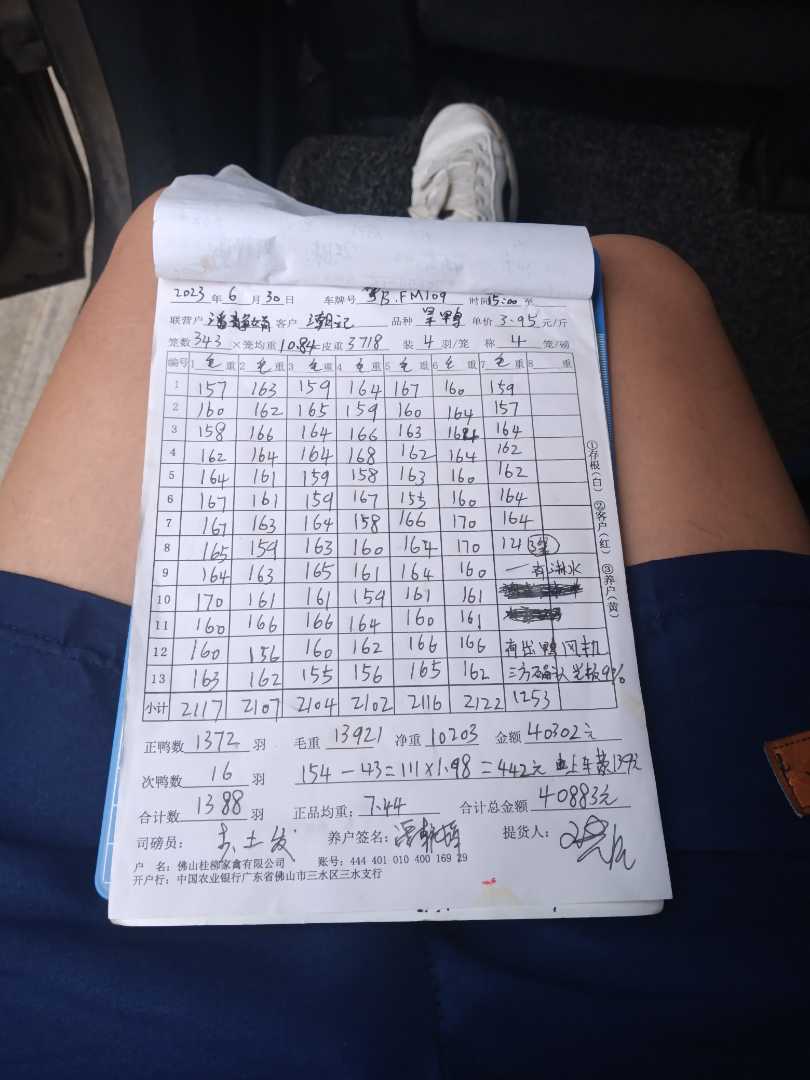 2023年6月30日 车牌号 粤B.FM109 时间15:00至
联营户 潘静娟 客户 潮记 品种 单价 3.95元/斤
笼数343×笼均重10.84=皮重3718 装4羽/笼 称4笼/磅
编号 1毛重 2毛重 3毛重 4毛重 5毛重 6毛重 7毛重 8 重
1 157 163 159 164 167 160 159
2 160 162 165 159 160 164 157
3 158 166 164 166 163 164
4 162 164 164 168 162 164 162
5 164 161 159 158 163 160 162
6 167 161 159 167 155 160 164
7 167 163 164 158 166 170 164
8 165 159 163 160 164 170 121
9 164 163 165 161 164 160 一有淋水
10 170 161 161 159 161 161
11 160 166 166 164 160 161
12 160 156 160 162 166 166 有出鸭风机
13 163 162 155 156 165 162 三方确认 9%
小计 2117 2107 2104 2102 2116 2122 1253
正鸭数 1372 羽 毛重 13921 净重 10203 金额 40302元
次鸭数 16 羽 154-43=111×1.98=442元 上车费139元
合计数 1388 羽 正品均重:7.44 合计总金额 40883元
司磅员: 养户签名: 提货人:
户 名:佛山桂柳家禽有限公司 账号:444 401 010 400 169 29
开户行:中国农业银行广东省佛山市三水区三水支行
①存根(白) ②客户(红) ③养户(黄)